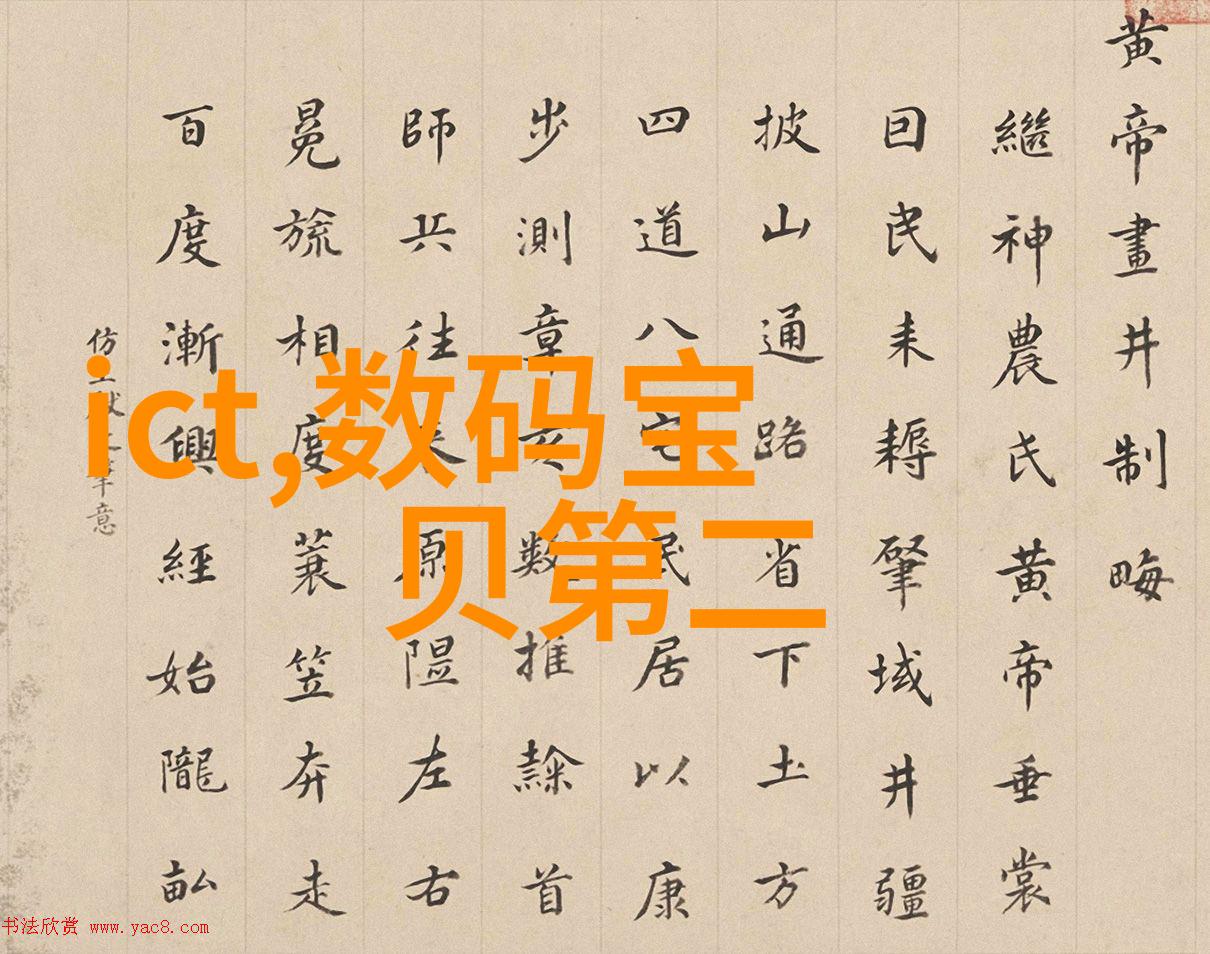 黄帝畫井制畮
繼神農氏黄帝垂裳
因民耒耨肈域井疆
披山通路省下土方
四道八宅民居以康
步測章亥數推隸首
師兵往來原隰左右
冕旒相度蓑笠奔走
百度漸興經始隴畝
仿 意
ict,数码宝
贝第二
书法欣赏 www.yac8.com